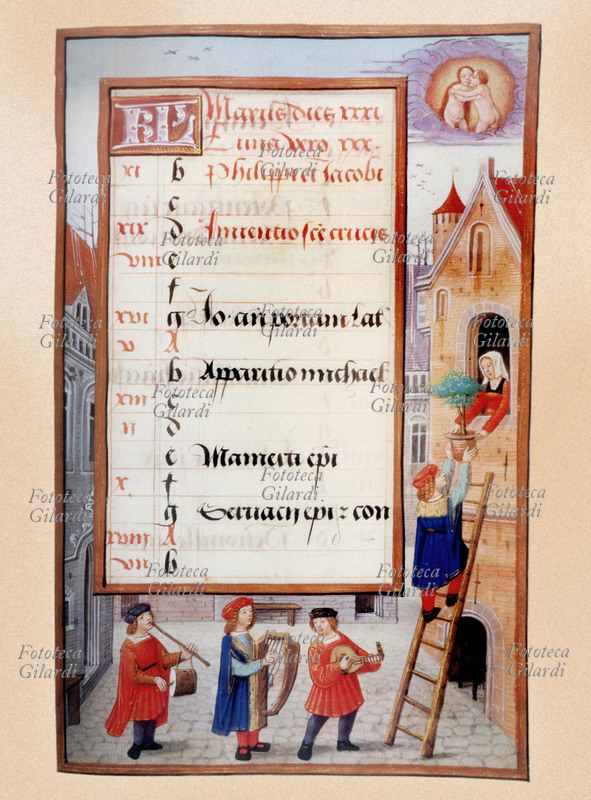 KL Maius dies xxxi
Luna vero xxx.
xi b Philippi et Jacobi
c
xix d Inventio sce crucis
viii e
f
xvi g Jo. an portam lat
v A
b Apparitio michael
xiii c
ii d
e Mamerti epi
x f
g Servacij epi z con
xviii A
vii b
Fototeca
Gilardi
Fototeca
Gilardi
Fototeca
Gilardi
Fototeca
Gilardi
Fototeca
Gilardi
Fototeca
Gilardi
Fototeca
Gilardi
Fototeca
Gilardi
Fototeca
Gilardi
Fototeca
Gilardi
Fototeca
Gilardi
Fototeca
Gilardi
Fototeca
Gilardi
Fototeca
Gilardi
Fototeca
Gilardi
Fototeca
Gilardi
Fototeca
Gilardi
Fototeca
Gilardi